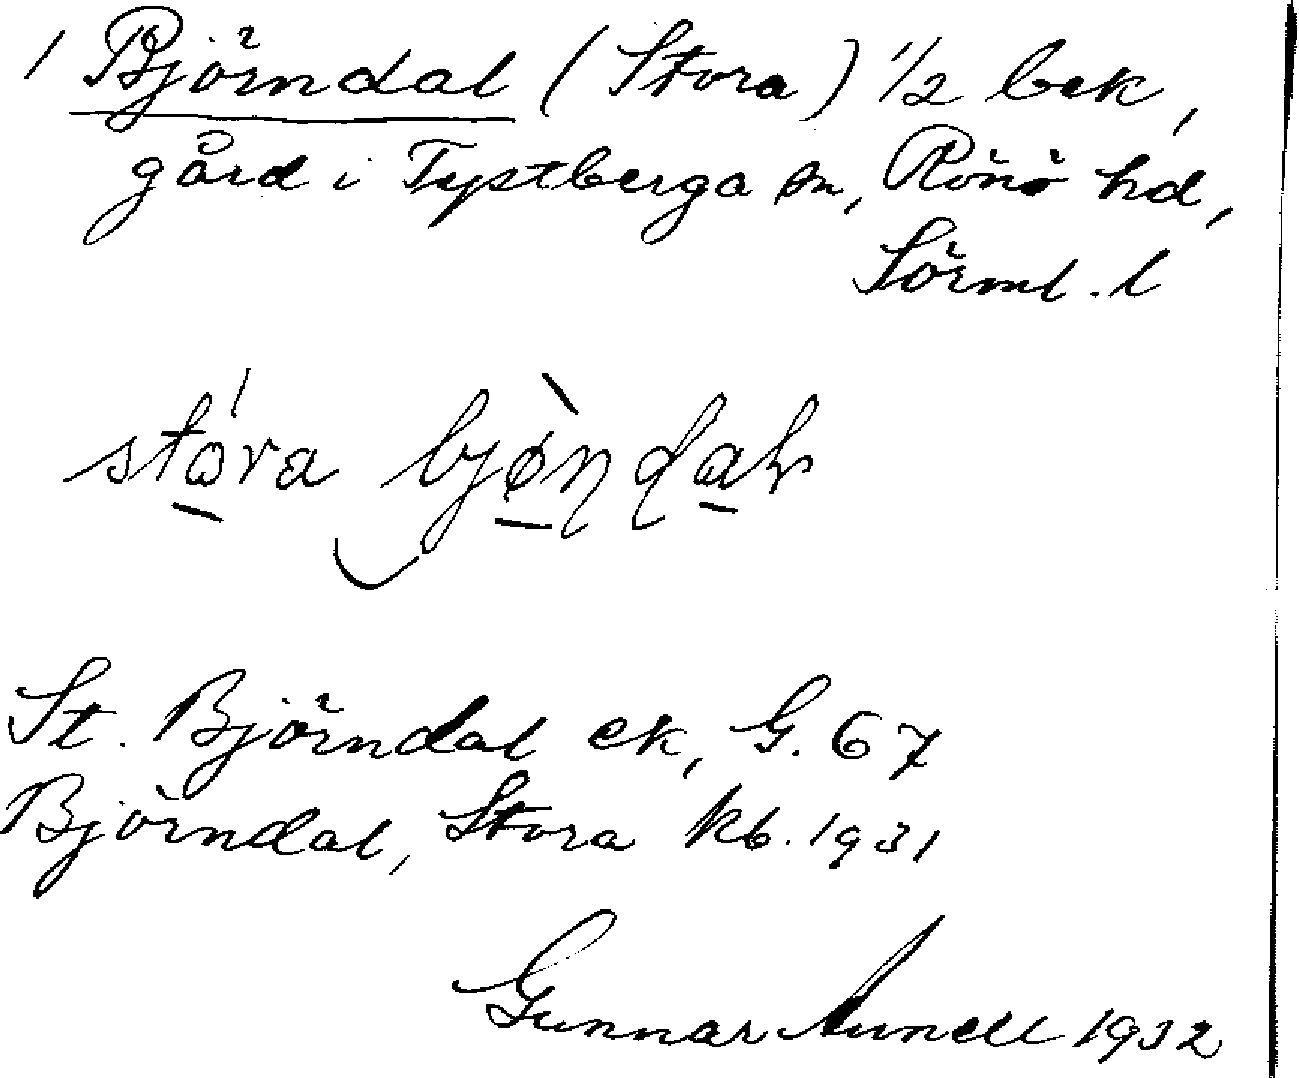 1 Björndal (Stora) 1/2 bek,
gård i Tystberga sn, Rönö hd,
Sörml. l
stóra bjøǹdal
St. Björndal ek, G. 67
Björndal, Stora kb. 1931
Gunnar Aunell 1932